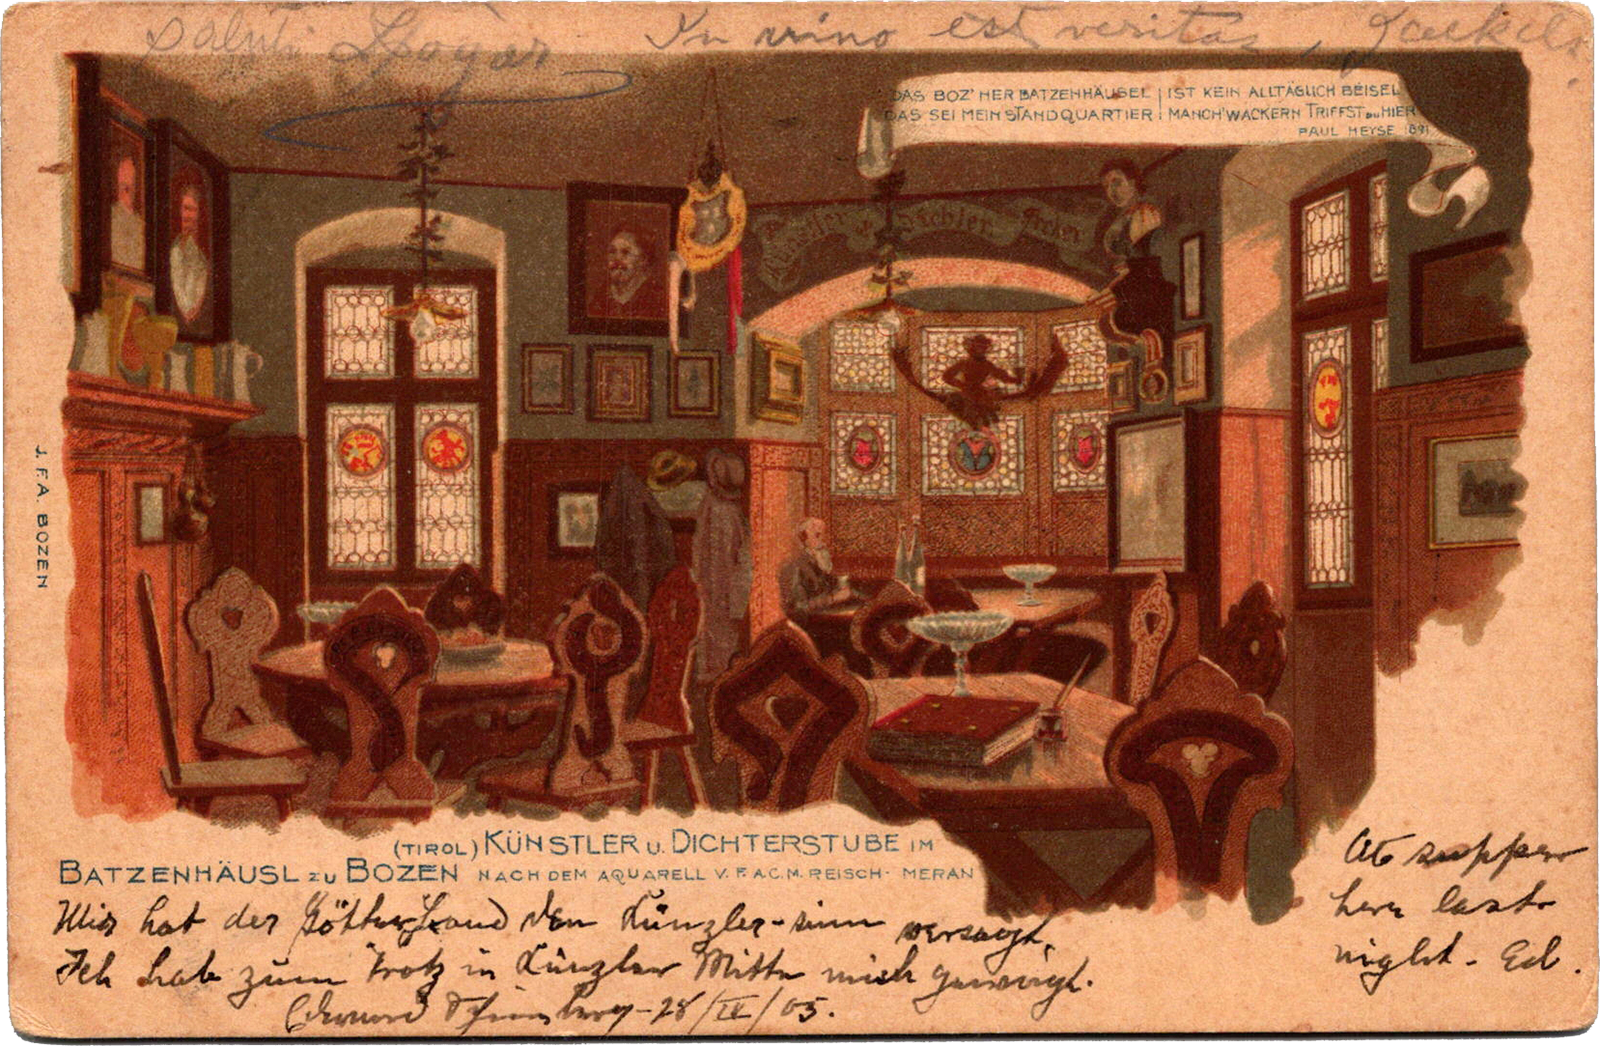 Saluti
In vino est veritas,
DAS BOZ'NER BATZENHÄUSEL | IST KEIN ALLTÄGLICH BEISEL
DAS SEI MEIN STANDQUARTIER | MANCH' WACKERN TRIFFST DU HIER
PAUL HEYSE 1891
Künstler u. Dichter
J. F. A. BOZEN
(TIROL) KÜNSTLER U. DICHTERSTUBE IM
BATZENHÄUSL ZU BOZEN NACH DEM AQUARELL V. F. A. C. M. REISCH - MERAN
Mir hat der Götter Hand den Künzler-sinn versagt.
Ich hab zum Trotz in Künzler Mitte mich gewagt.
28/IV/05.
Ate supper
here last
night - Ed.